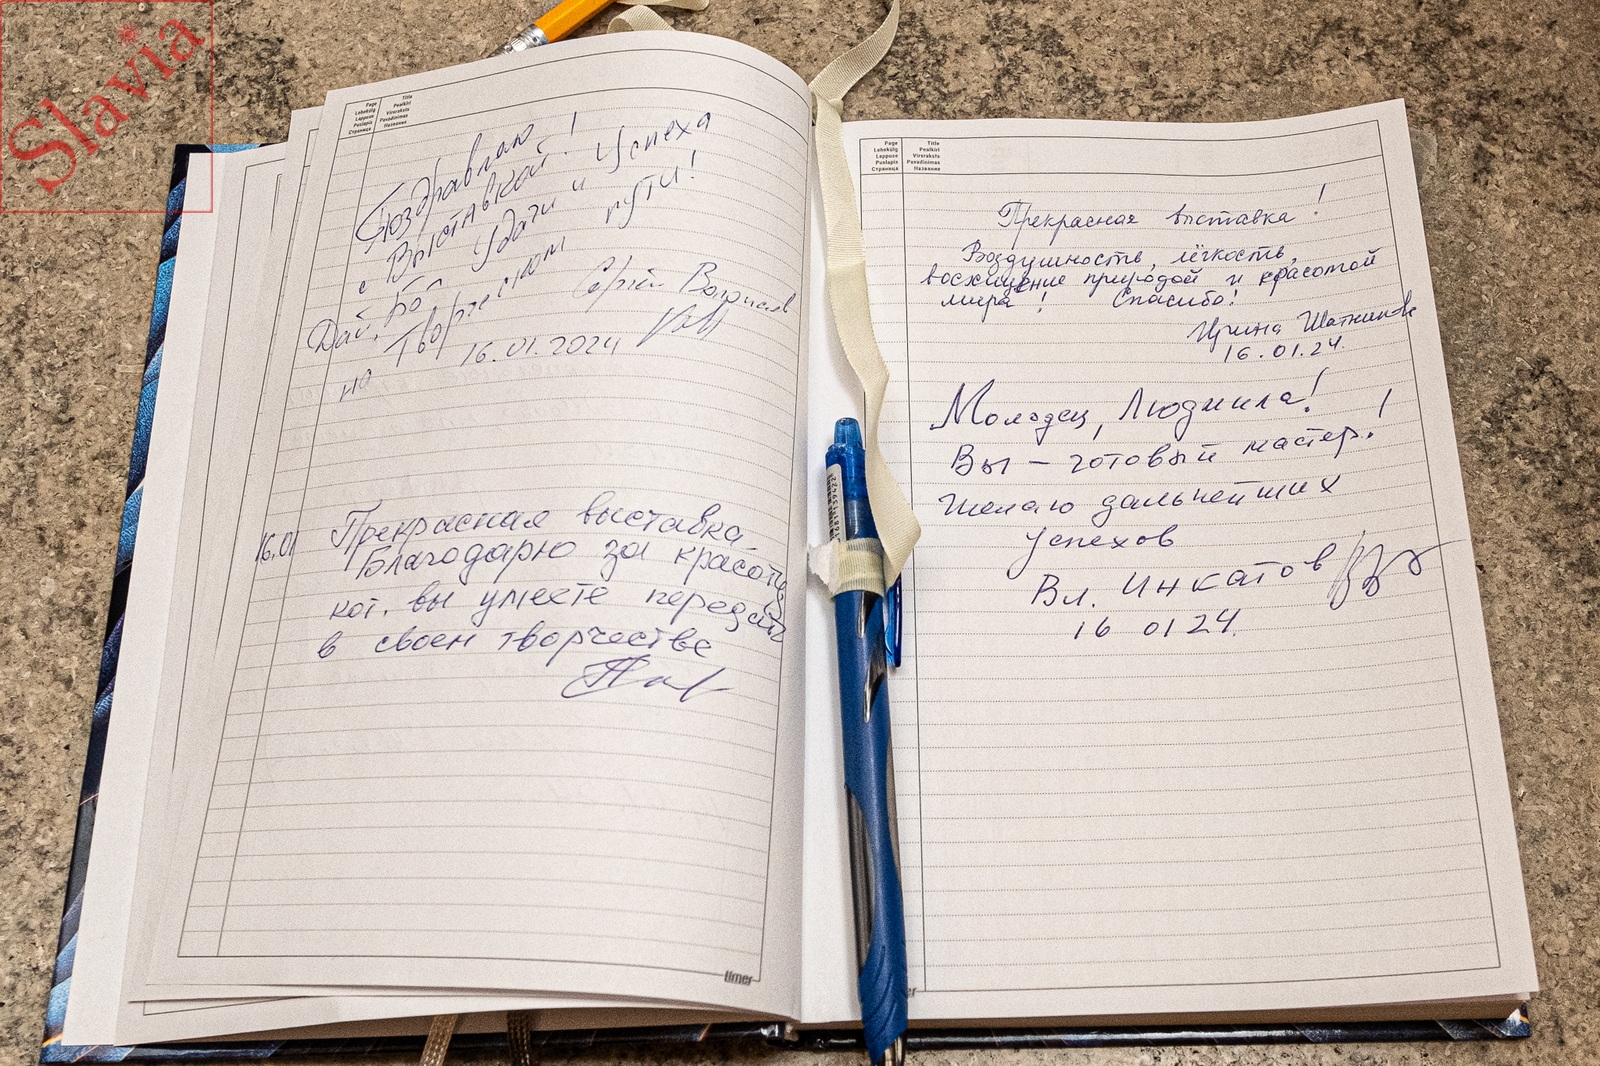 Slavia
Page
Lehekülg
Lappuse
Puslapis
Страница
Title
Pealkiri
Virsraksts
Pavadinimas
Название
Поздравляю!
с Выставкой!
Дай, Бог Удачи и Успеха
на Творческом пути!
Сергей
16.01.2024
16.01
Прекрасная выставка
Благодарю за красоту
кот. вы умеете передать
в своем творчестве
timer
Page
Lehekülg
Lappuse
Puslapis
Страница
Title
Pealkiri
Virsraksts
Pavadinimas
Название
Прекрасная выставка!
Воздушность, лёгкость,
восхищение природой и красотой
мира! Спасибо!
Ирина
16.01.24.
Молодец, Людмила!
Вы – готовый мастер!
Желаю дальнейших
успехов
Вл. Инкатов
16 01 24.